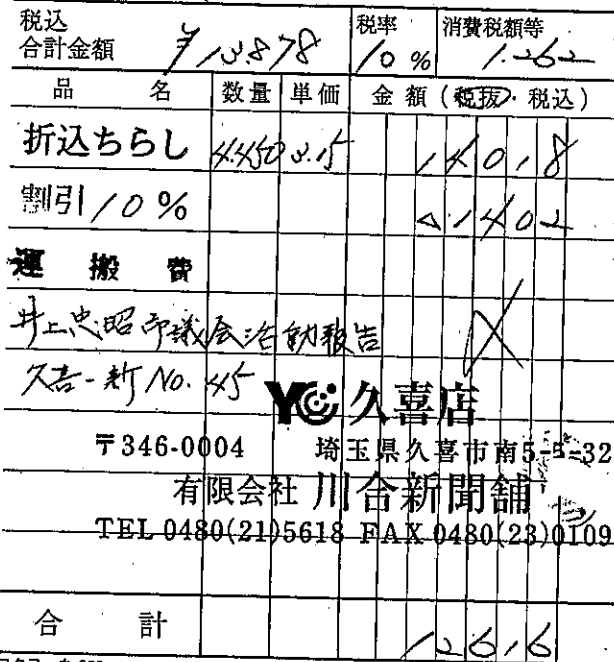 税込 合計金額 ¥13,878 税率 10% 消費税額等 1,262
品名 数量 単価 金額(税抜・税込)
折込ちらし 4,450 3.15 14018
割引10% △1402
運搬費
井上忠昭市議会活動報告
久喜一新 No. 45
YC 久喜店
〒346-0004 埼玉県久喜市南5-5-32
有限会社 川合新聞舗
TEL 0480(21)5618 FAX 0480(23)0109
合計 12616